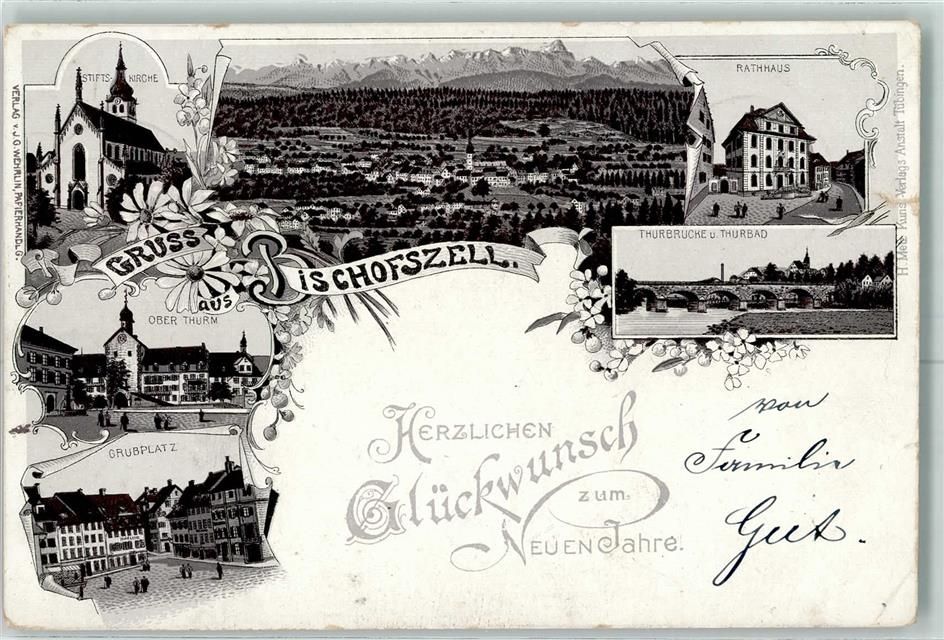 STIFTS-KIRCHE
RATHHAUS
VERLAG v. J.G. WEHRLIN, PAPIERHANDLG.
H. Metz Kunst Verlags Anstalt Tübingen.
THURBRÜCKE u. THURBAD
GRUSS
AUS BISCHOFSZELL.
OBER THURM
GRUBPLATZ
HERZLICHEN
Glückwunsch
zum
NEUEN Jahre.
von
Familie
Geet.